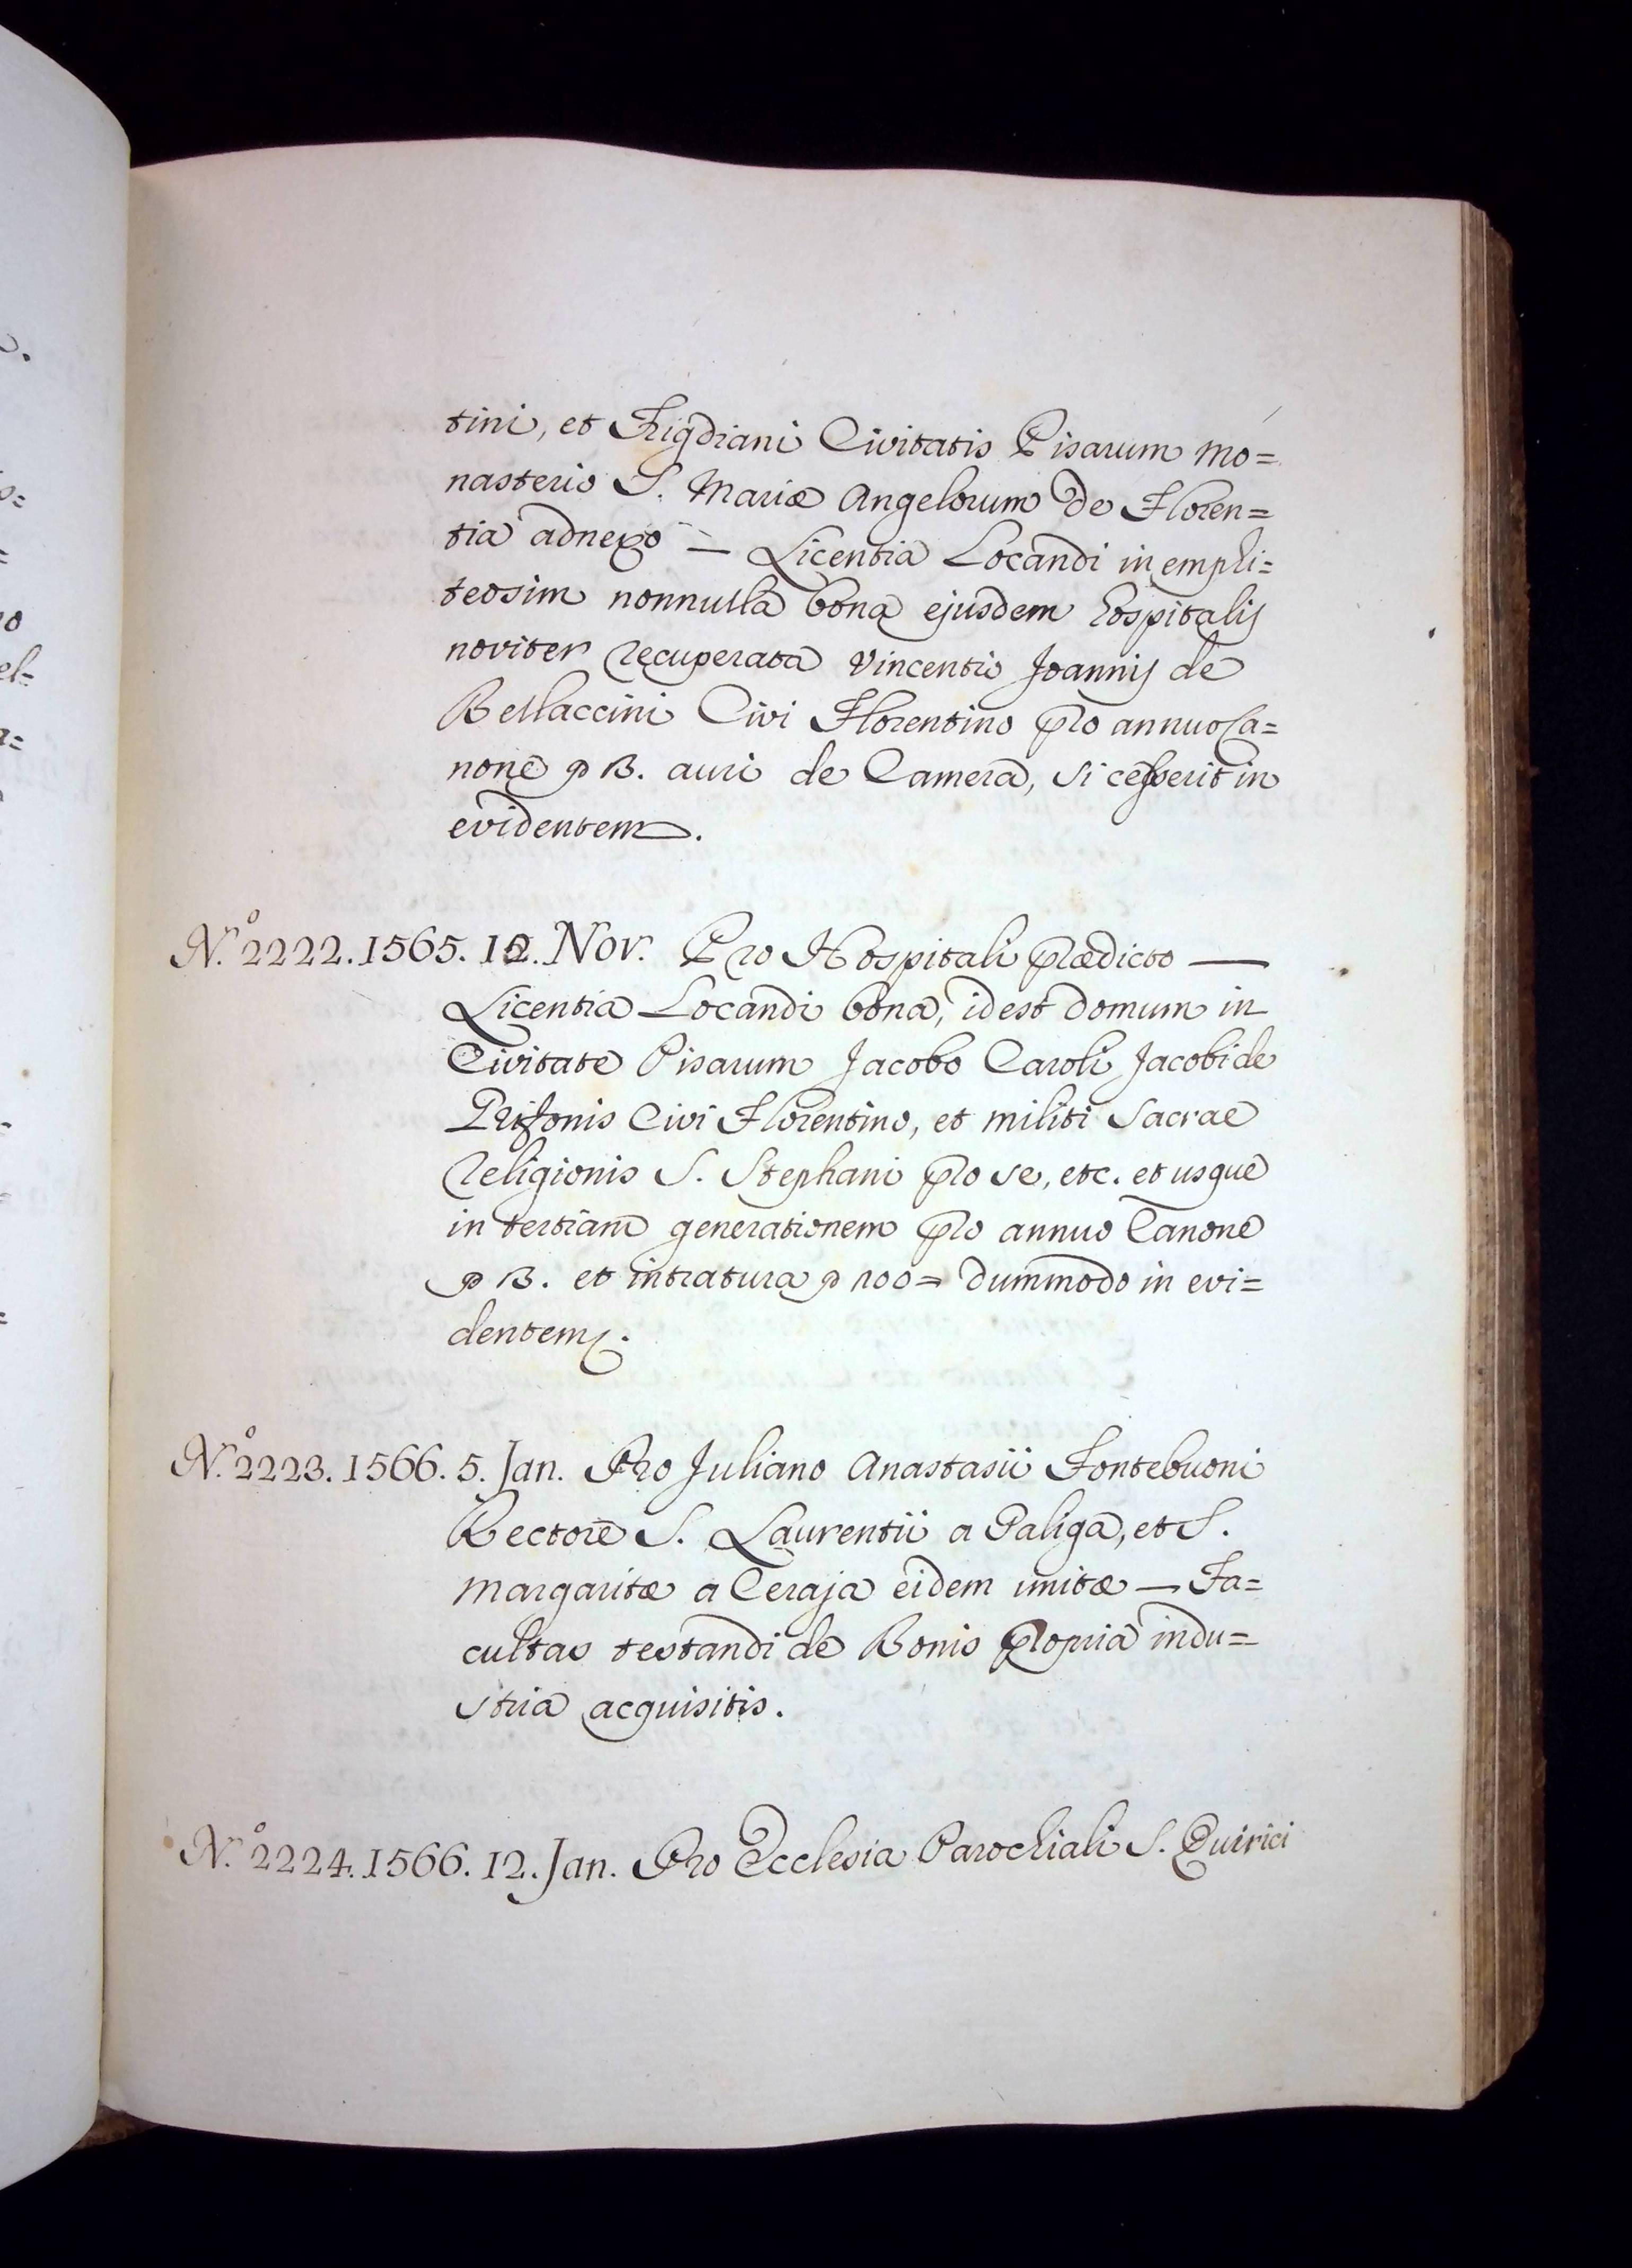 tini, et Frigdiani Civitatis Pisarum Mo=
nasterio S. Mariæ Angelorum de Floren=
tia adnexo — Licentia Locandi in emphi=
teosim nonnulla bona ejusdem hospitalis
noviter recuperata Vincentio Joannis de
Bellaccini Civi Florentino pro annuo Ca=
none 13. auri de Camera, si cesserit in
evidentem.
N.º 2222. 1565. 12. Nov. Pro Hospitali prædicto —
Licentia Locandi bona, idest domum in
Civitate Pisarum Jacobo Caroli Jacobi de
Civi Florentino, et militi Sacrae
Religionis S. Stephani pro se, etc. et usque
in tertiam generationem pro annuo Canone
13. et intratura 100= dummodo in evi=
dentem.
N.º 2223. 1566. 5. Jan. Pro Juliano Anastasii Fontebuoni
Rectore S. Laurentii a Galiga, et S.
Margaritæ a Ceraja eidem unitæ — Fa=
cultas testandi de Bonis propria indu=
stria acquisitis.
N.º 2224. 1566. 12. Jan. Pro Ecclesia Parochiali S. Quirici